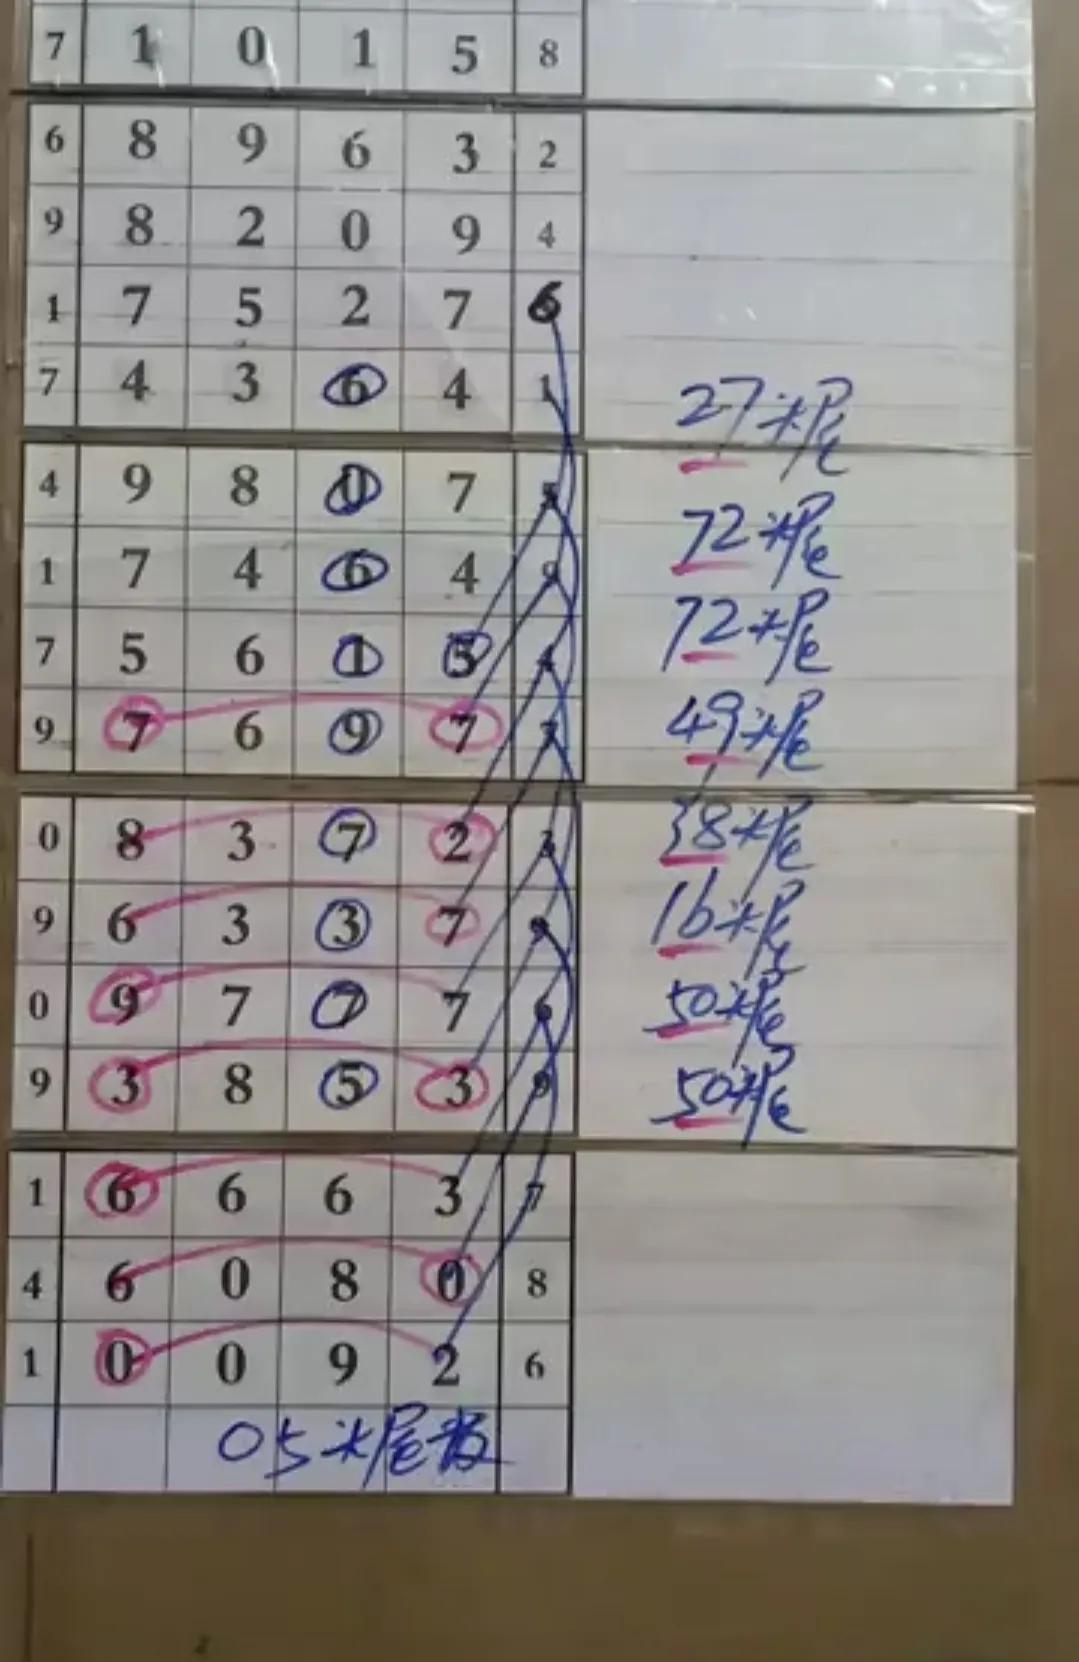 7 1 0 1 5 8
6 8 9 6 3 2
9 8 2 0 9 4
1 7 5 2 7 6
7 4 3 6 4 1 27米尾
4 9 8 0 7 5 72米尾
1 7 4 6 4 9 72米尾
7 5 6 1 5 4 49米尾
9 7 6 9 7 7
0 8 3 7 2 3 38米尾
9 6 3 3 7 16米尾
0 9 7 7 7 6 50米尾
9 3 8 5 3 9 50米尾
1 6 6 6 3 7
4 6 0 8 0 8
1 0 0 9 2 6
05米尾数